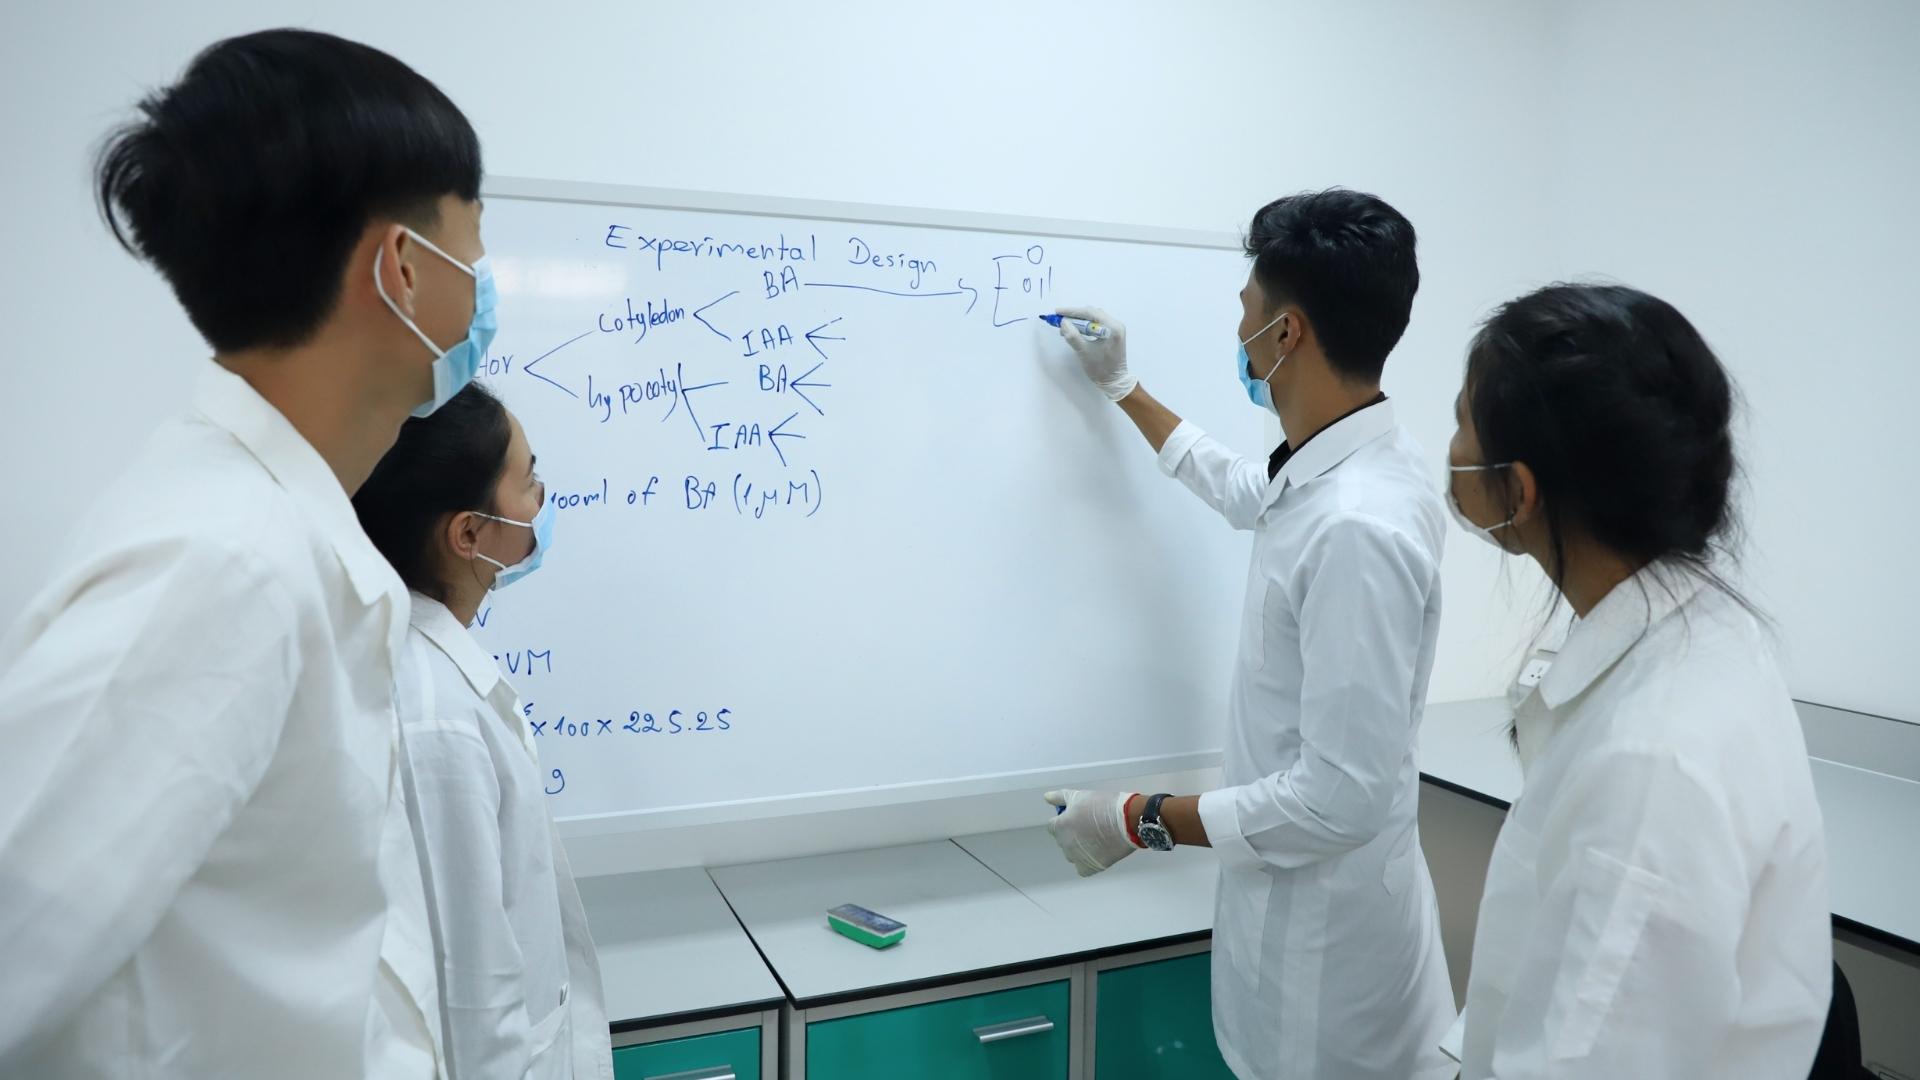 Experimental Design
BA
0
0,1
cotyledon
IAA
hypocotyl
BA
IAA
100ml of BA (1µM)
VM
x 100 x 225.25
g